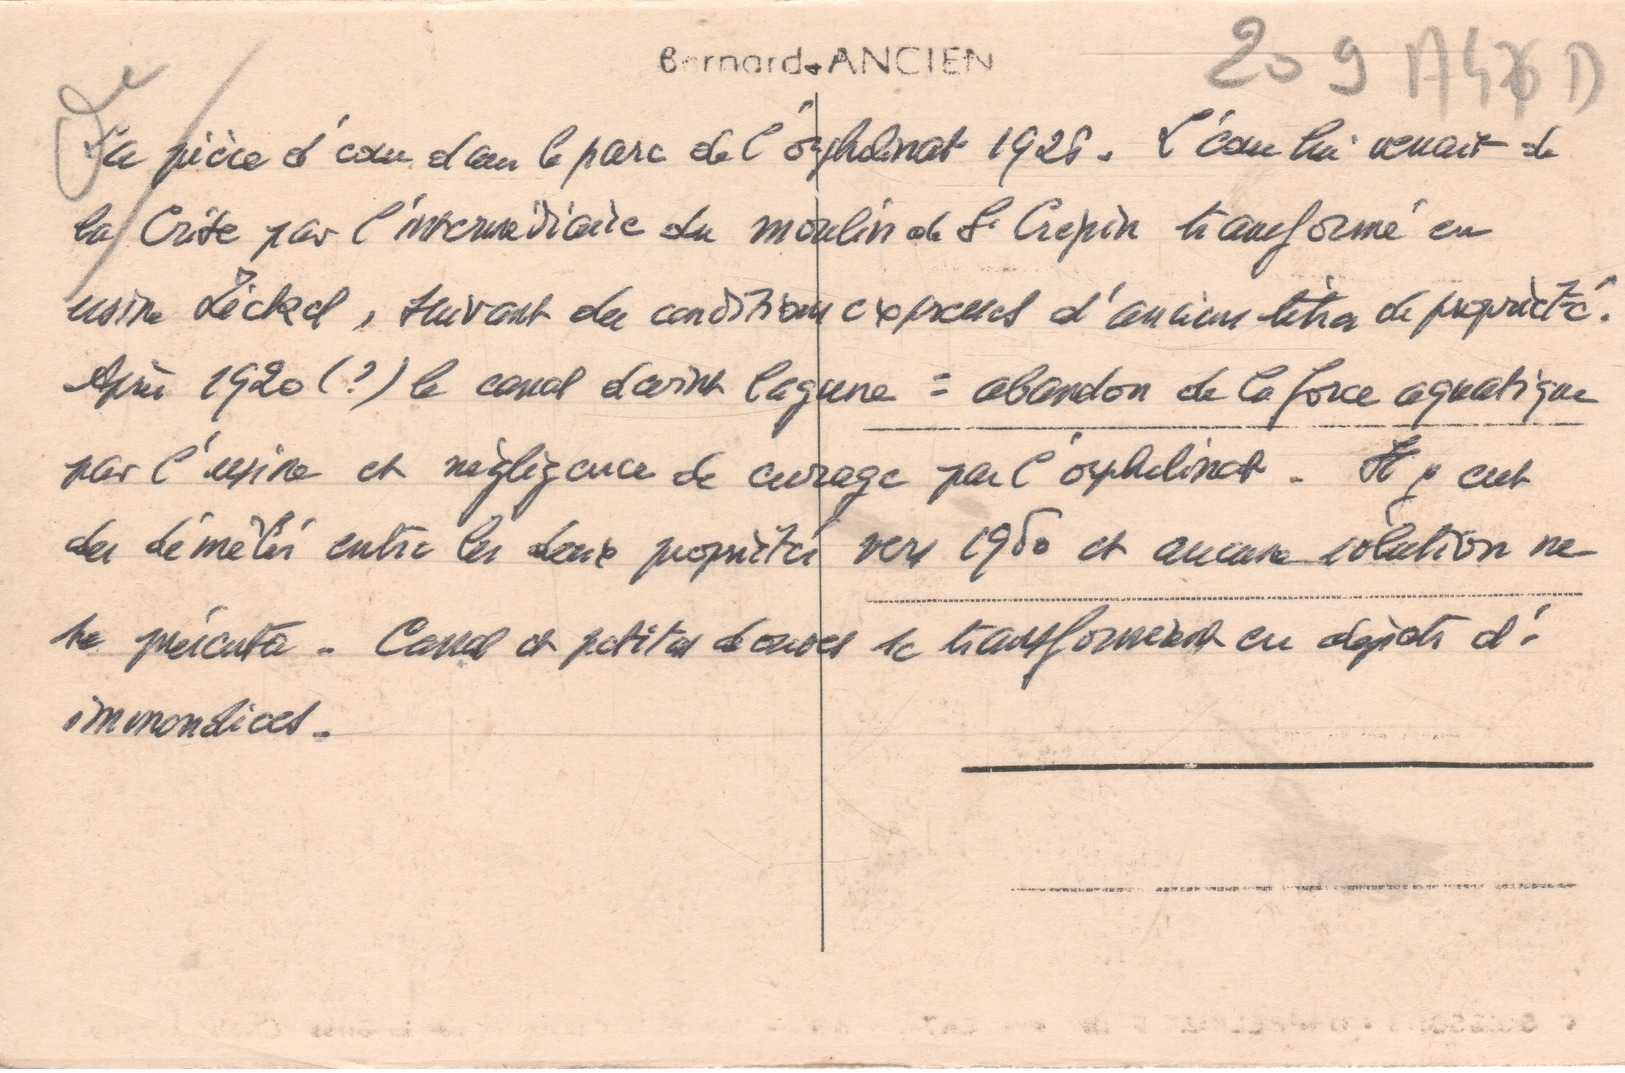 Bernard ANCIEN
209 A476 D
La pièce d'eau dans le parc de l'orphelinat 1928. L'eau lui venait de
la Crise par l'intermédiaire du moulin de St Crépin transformé en
usine Zickel, suivant des conditions expresses d'anciens titres de propriété.
Après 1920 (?) le canal devint lagune = abandon de la force aquatique
par l'usine et négligence de curage par l'orphelinat. Il y eut
des démêlés entre les deux propriétés vers 1950 et aucune solution ne
se présenta. Canal et petites douves se transforment en dépôts d'
immondices.